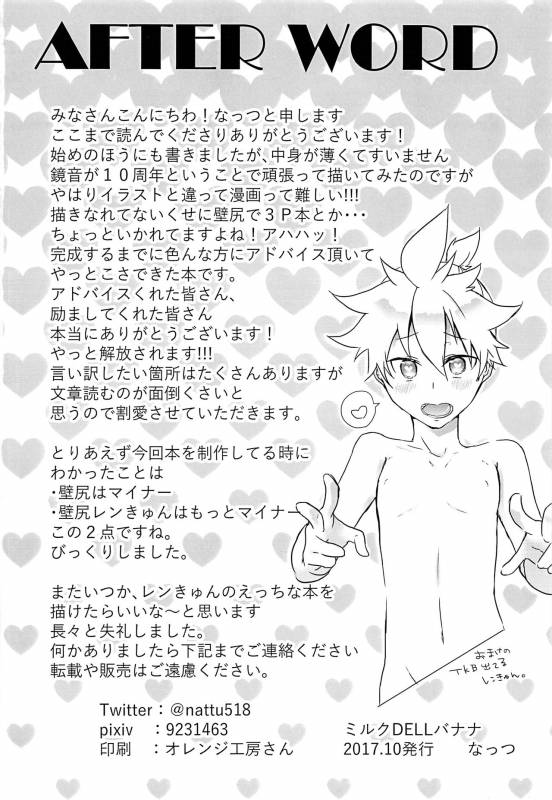 AFTER WORD
みなさんこんにちわ！なっつと申します
ここまで読んでくださりありがとうございます！
始めのほうにも書きましたが、中身が薄くてすいません
鏡音が１０周年ということで頑張って描いてみたのですが
やはりイラストと違って漫画って難しい!!!
描きなれてないくせに壁尻で３Ｐ本とか・・・
ちょっといかれてますよね！アハハッ！
完成するまでに色んな方にアドバイス頂いて
やっとこさできた本です。
アドバイスくれた皆さん、
励ましてくれた皆さん
本当にありがとうございます！
やっと解放されます!!!
言い訳したい箇所はたくさんありますが
文章読むのが面倒くさいと
思うので割愛させていただきます。
とりあえず今回本を制作してる時に
わかったことは
・壁尻はマイナー
・壁尻レンきゅんはもっとマイナー
この２点ですね。
びっくりしました。
またいつか、レンきゅんのえっちな本を
描けたらいいな～と思います
長々と失礼しました。
何かありましたら下記までご連絡ください
転載や販売はご遠慮ください。
おまけの
TKB出てる
レンきゅん。
Twitter：@nattu518
pixiv ：9231463
印刷 ：オレンジ工房さん
ミルクDELLバナナ
2017.10発行 なっつ